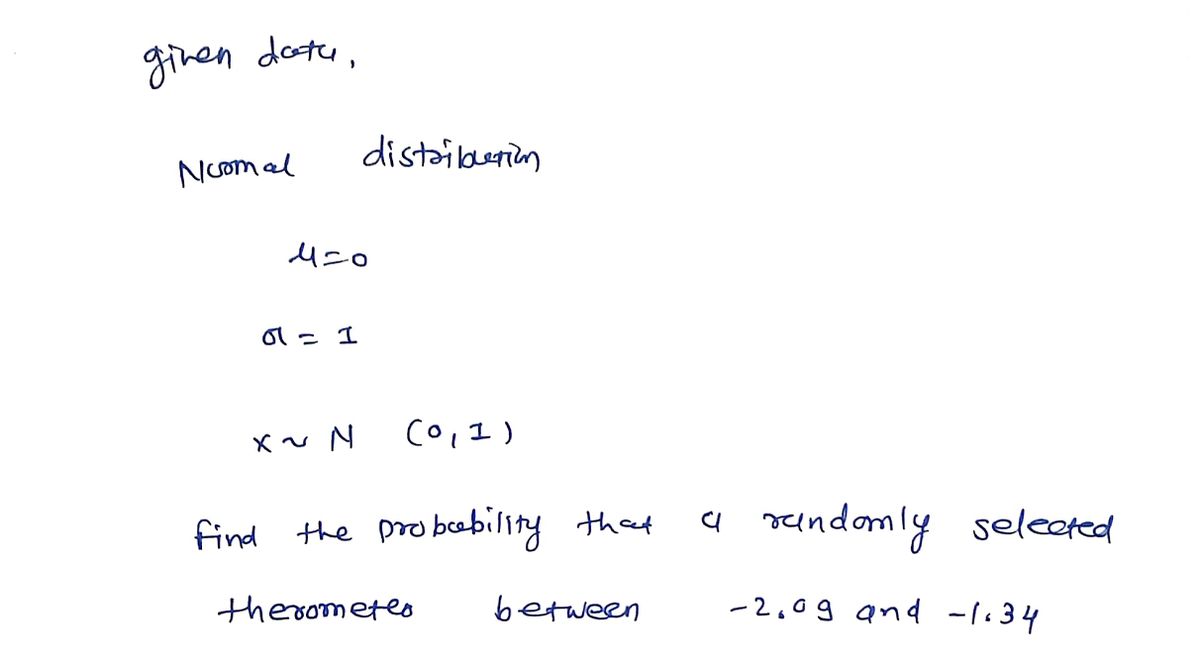 given data,
Normal distribution
μ=0
σ = 1
x ~ N (0, 1)
find the probability that a randomly selected
thermometer between -2.09 and -1.34